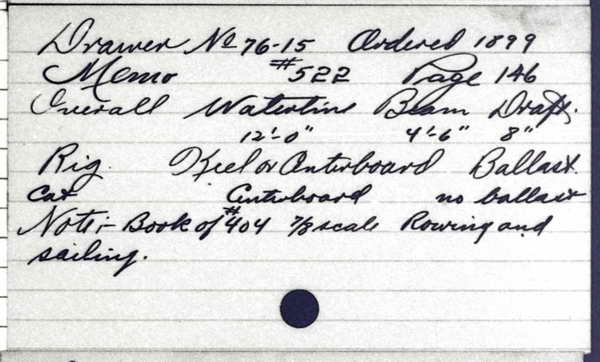 Drawer No 76-15 Ordered 1899
Memo #522 Page 146
Overall Waterline Beam Draft.
12'-0" 4'-6" 8"
Rig. Keel or Centerboard Ballast.
Cat Centerboard no ballast
Note:- Book of #404 7/8 scale Rowing and
sailing.